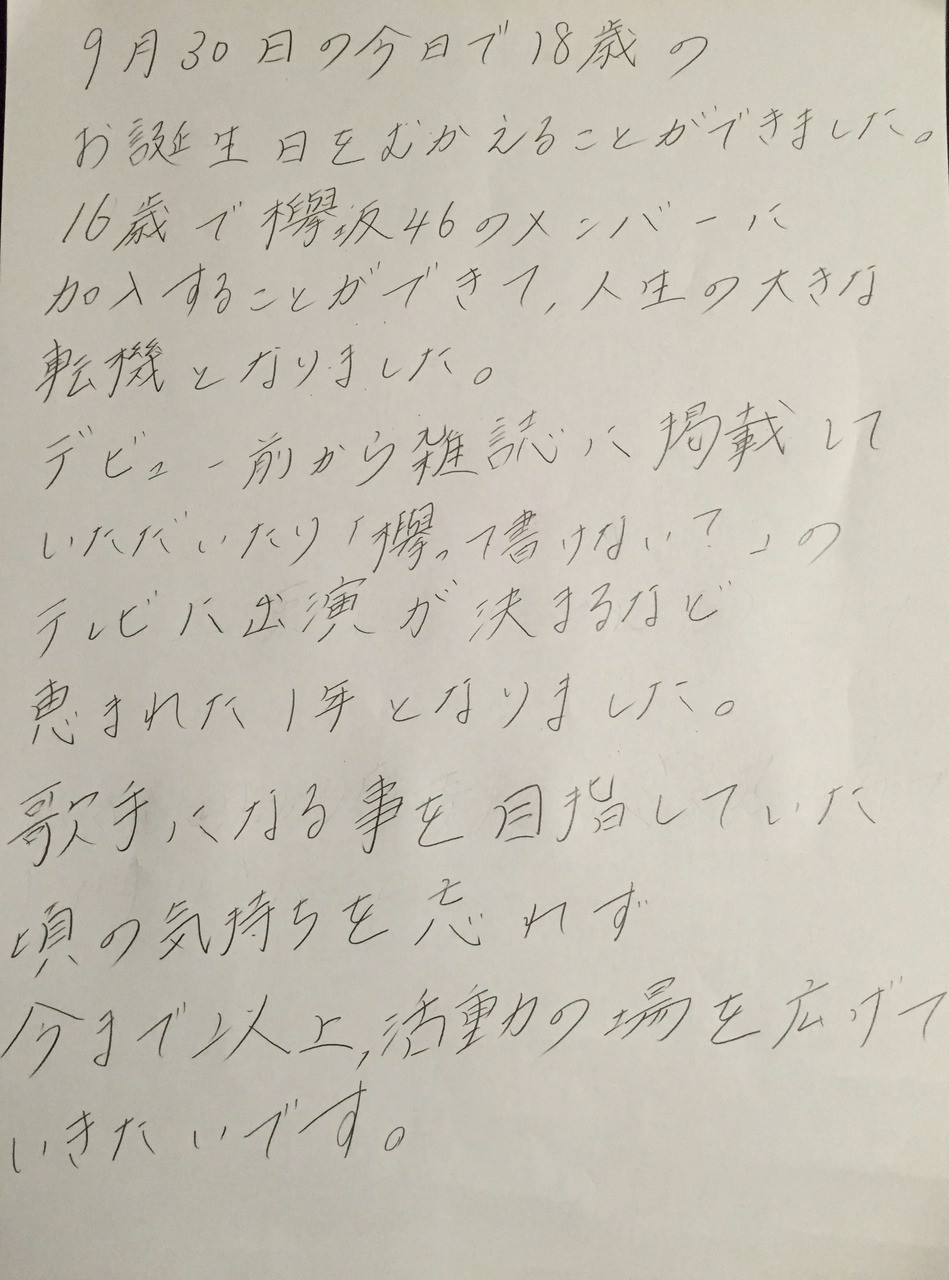 9月30日の今日で18歳の
お誕生日をむかえることができました。
16歳で欅坂46のメンバーに
加入することができて、人生の大きな
転機となりました。
デビュー前から雑誌に掲載して
いただいたり「欅って書けない?」の
テレビに出演が決まるなど
恵まれた1年となりました。
歌手になる事を目指していた
頃の気持ちを忘れず
今まで以上、活動の場を広げて
いきたいです。